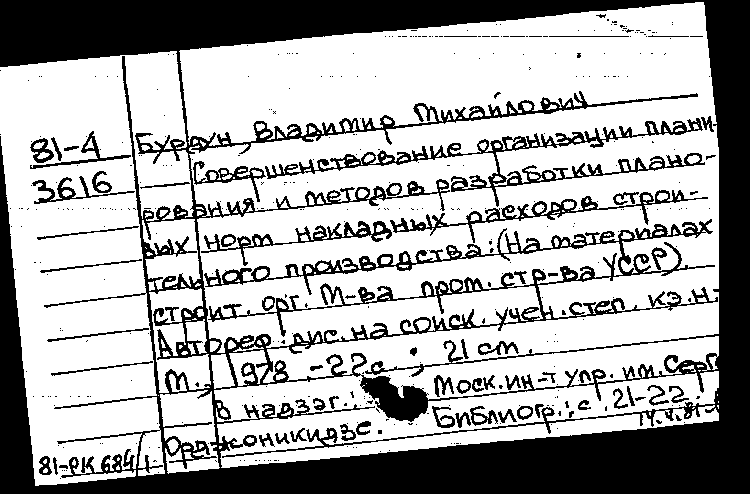 81-4
3616
Бурдун, Владимир Михайлович
Совершенствование организации плани-
рования и методов разработки плано-
вых норм накладных расходов строи-
тельного производства: (На материалах
строит. орг. М-ва пром. стр-ва УССР).
Автореф. дис. на соиск. учен. степ. к.э.н.
М., 1978. - 22с. ; 21 см.
В надзаг.: Моск. ин-т упр. им. Серго
Орджоникидзе. Библиогр.: с. 21-22.
81-РК 684